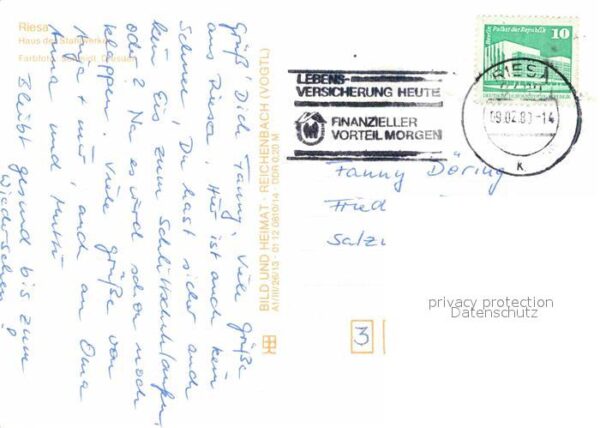 Riesa
Haus der Stahlwerker
Grüß' Dich Fanny, viele Grüße
aus Riesa. Hier ist auch kein
Schnee, Du hast sicher auch
kein Eis zum Schlittschuhlaufen,
oder? Na es wird schon noch
klappen. Viele Grüße von
Anja + mir, auch an Oma
Anna und Mutti
Bleibt gesund bis zum
Wiedersehen!
BILD UND HEIMAT · REICHENBACH (VOGTL)
A1/III/26/13 · 01 12 0610/14 · DDR 0,20 M
LEBENS-
VERSICHERUNG HEUTE
FINANZIELLER
VORTEIL MORGEN
RIESA
09.02.89-14
K
Berlin, Palast der Republik
10
Fanny Döring
Fried
Salz
3
privacy protection
Datenschutz